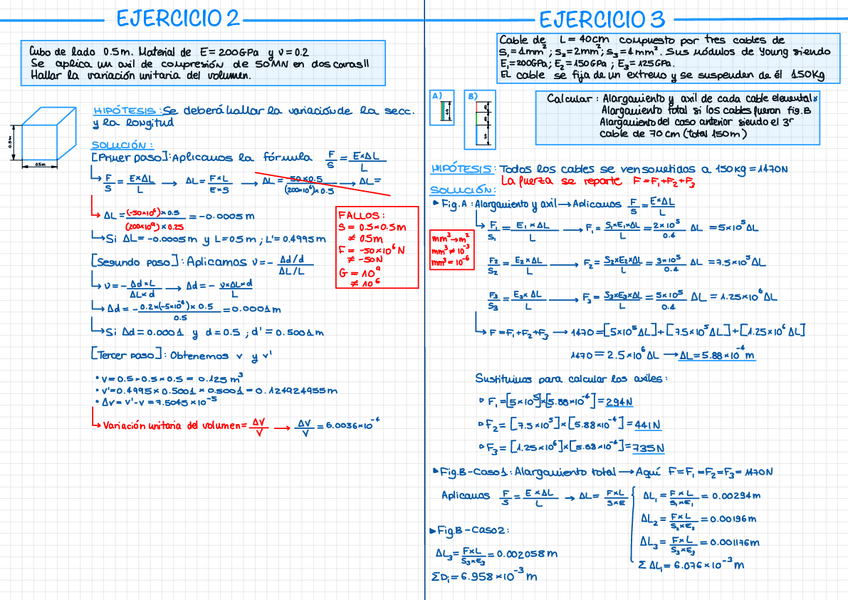 EJERCICIO 2
Cubo de lado 0.5m. Material de E=200GPa y ν=0.2
Se aplica un axil de compresión de 50MN en dos caras
Hallar la variación unitaria del volumen.
0.5m
0.5m
HIPÓTESIS: Se deberá hallar la variación de la secc.
y la longitud
SOLUCIÓN:
[Primer paso]: Aplicamos la fórmula F/S = E×ΔL/L
F/S = E×ΔL/L → ΔL = F×L/E×S → ΔL = 50×0.5/(200×10⁶)×0.5 → ΔL=
ΔL = (-50×10⁶)×0.5/(200×10⁹)×0.25 = -0.0005m
Si ΔL=-0.0005m y L=0.5m; L'=0.4995m
FALLOS:
S = 0.5×0.5m
≠ 0.5m
F = -50×10⁶N
≠ -50N
G = 10⁹
≠ 10⁶
[Segundo paso]: Aplicamos ν=- Δd/d / ΔL/L
ν=- Δd×L/ΔL×d → Δd=- ν×ΔL×d/L
Δd=- 0.2×(-5×10⁻⁴)×0.5/0.5 = 0.0001m
Si Δd=0.0001 y d=0.5; d'=0.5001m
[Tercer paso]: Obtenemos v y v'
• v=0.5×0.5×0.5 = 0.125 m³
• v'=0.4995×0.5001×0.5001=0.124924955m
• Δv=v'-v=7.5045×10⁻⁵
Variación unitaria del volumen= ΔV/V → ΔV/V = 6.0036×10⁻⁴
EJERCICIO 3
Cable de L=40cm compuesto por tres cables de
S₁=1mm²; S₂=2mm²; S₃=4mm². Sus módulos de Young siendo
E₁=200GPa; E₂=150GPa; E₃=125GPa.
EL cable se fija de un extremo y se suspenden de él 150Kg
A)
B)
Calcular: Alargamiento y axil de cada cable elemental
Alargamiento total si los cables fueran fig.B
Alargamiento del caso anterior siendo el 3º
cable de 70cm (total 150m)
HIPÓTESIS: Todos los cables se ven sometidos a 150kg=1470N
La fuerza se reparte F=F₁+F₂+F₃
SOLUCIÓN:
Fig.A: Alargamiento y axil → Aplicamos F/S = E×ΔL/L
F₁/S₁ = E₁×ΔL/L → F₁ = S₁×E₁×ΔL/L = 2×10⁵/0.4 ΔL =5×10⁵ΔL
mm² → m²
mm² ≠ 10⁻³
mm² = 10⁻⁶
F₂/S₂ = E₂×ΔL/L → F₂ = S₂×E₂×ΔL/L = 3×10⁵/0.4 ΔL =7.5×10⁵ΔL
F₃/S₃ = E₃×ΔL/L → F₃ = S₃×E₃×ΔL/L = 5×10⁵/0.4 ΔL = 1.25×10⁶ΔL
F=F₁+F₂+F₃ → 1470=[5×10⁵ΔL]+[7.5×10⁵ΔL]+[1.25×10⁶ΔL]
1470=2.5×10⁶ΔL → ΔL=5.88×10⁻⁴m
Sustituimos para calcular los axiles:
F₁=[5×10⁵]×[5.88×10⁻⁴]=294N
F₂=[7.5×10⁵]×[5.88×10⁻⁴]=441N
F₃=[1.25×10⁶]×[5.88×10⁻⁴]=735N
Fig.B-Caso1: Alargamiento total → Aquí F=F₁=F₂=F₃=1470N
Aplicamos F/S = E×ΔL/L → ΔL= F×L/S×E
ΔL₁ = F×L/S₁×E₁ = 0.00294m
ΔL₂ = F×L/S₂×E₂ = 0.00196m
ΔL₃ = F×L/S₃×E₃ = 0.001176m
ΣΔL₁=6.076×10⁻³m
Fig.B-Caso2:
ΔL₃= F×L/S₃×E₃ =0.002058m
ΣDᵢ=6.958×10⁻³m